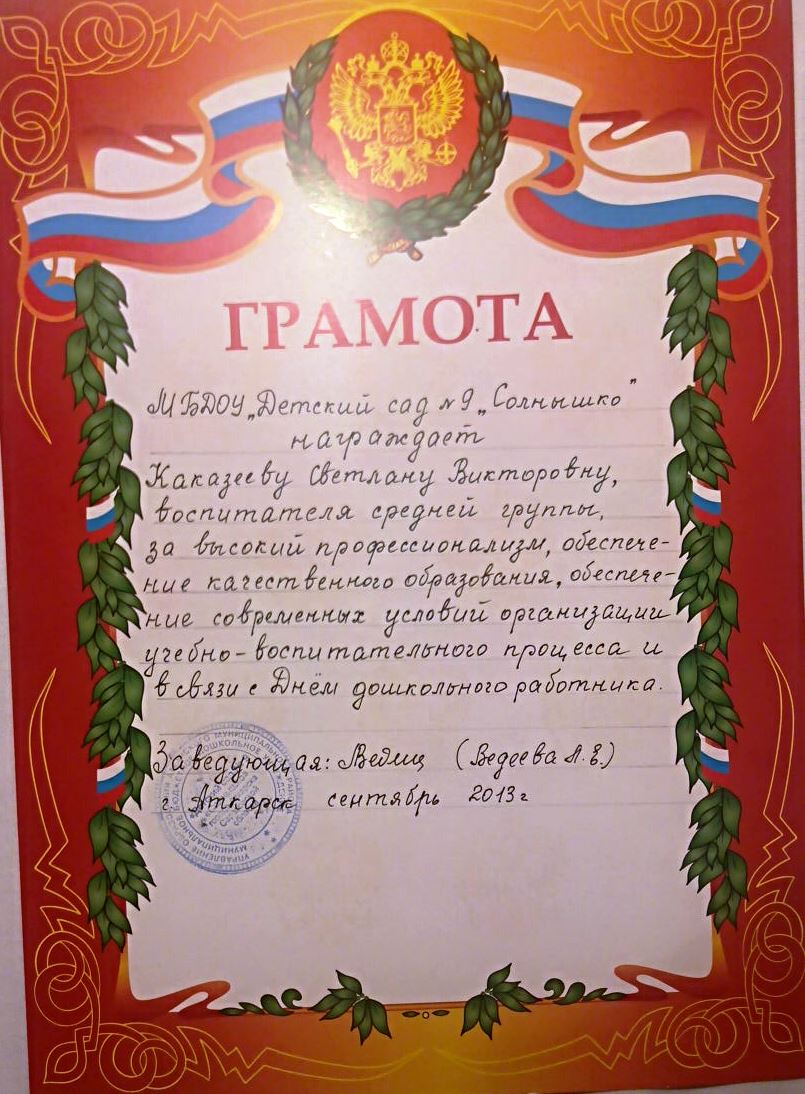 ГРАМОТА
МБДОУ „Детский сад №9 „Солнышко"
награждает
Каказееву Светлану Викторовну,
воспитателя средней группы,
за высокий профессионализм, обеспече-
ние качественного образования, обеспече-
ние современных условий организации
учебно-воспитательного процесса и
в связи с Днём дошкольного работника.
Заведующая: (Ведеева Л.В.)
г. Аткарск сентябрь 2013г